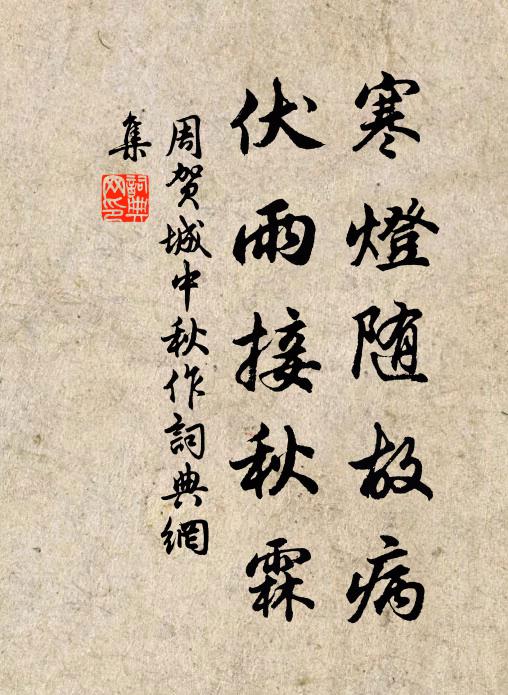 寒燈随故病
伏雨接秋霖
周賀城中秋作詞典網
集
詞典網印